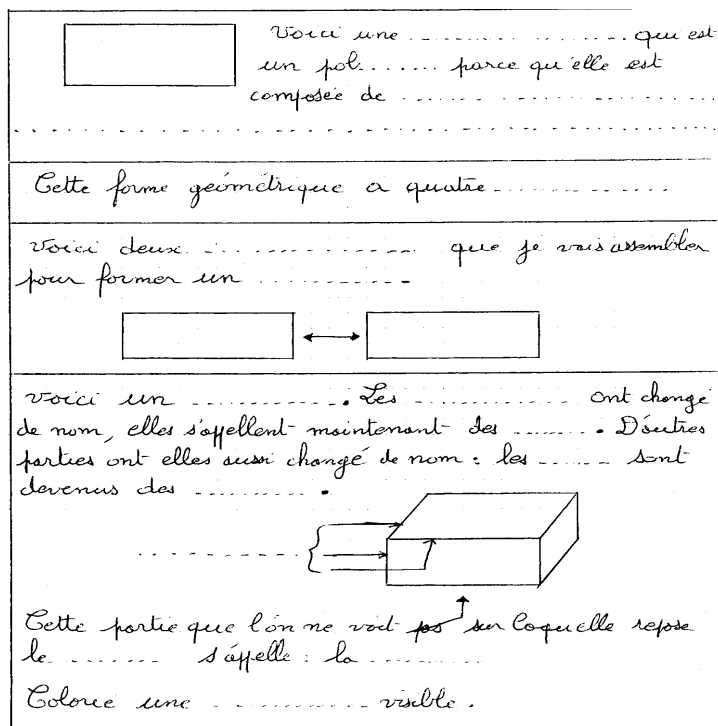 Voici une .................. qui est
un pol....... parce qu'elle est
composée de ....................
........................................
Cette forme géométrique a quatre.............
Voici deux ................ que je vais assembler
pour former un ............
Voici un ............. Les ............. ont changé
de nom, elles s'appellent maintenant des ........ D'autres
parties ont elles aussi changé de nom : les ...... sont
devenus des ..........
.............
Cette partie que l'on ne voit pas sur laquelle repose
le ........ s'appelle : la ..........
Colorie une ............ visible.